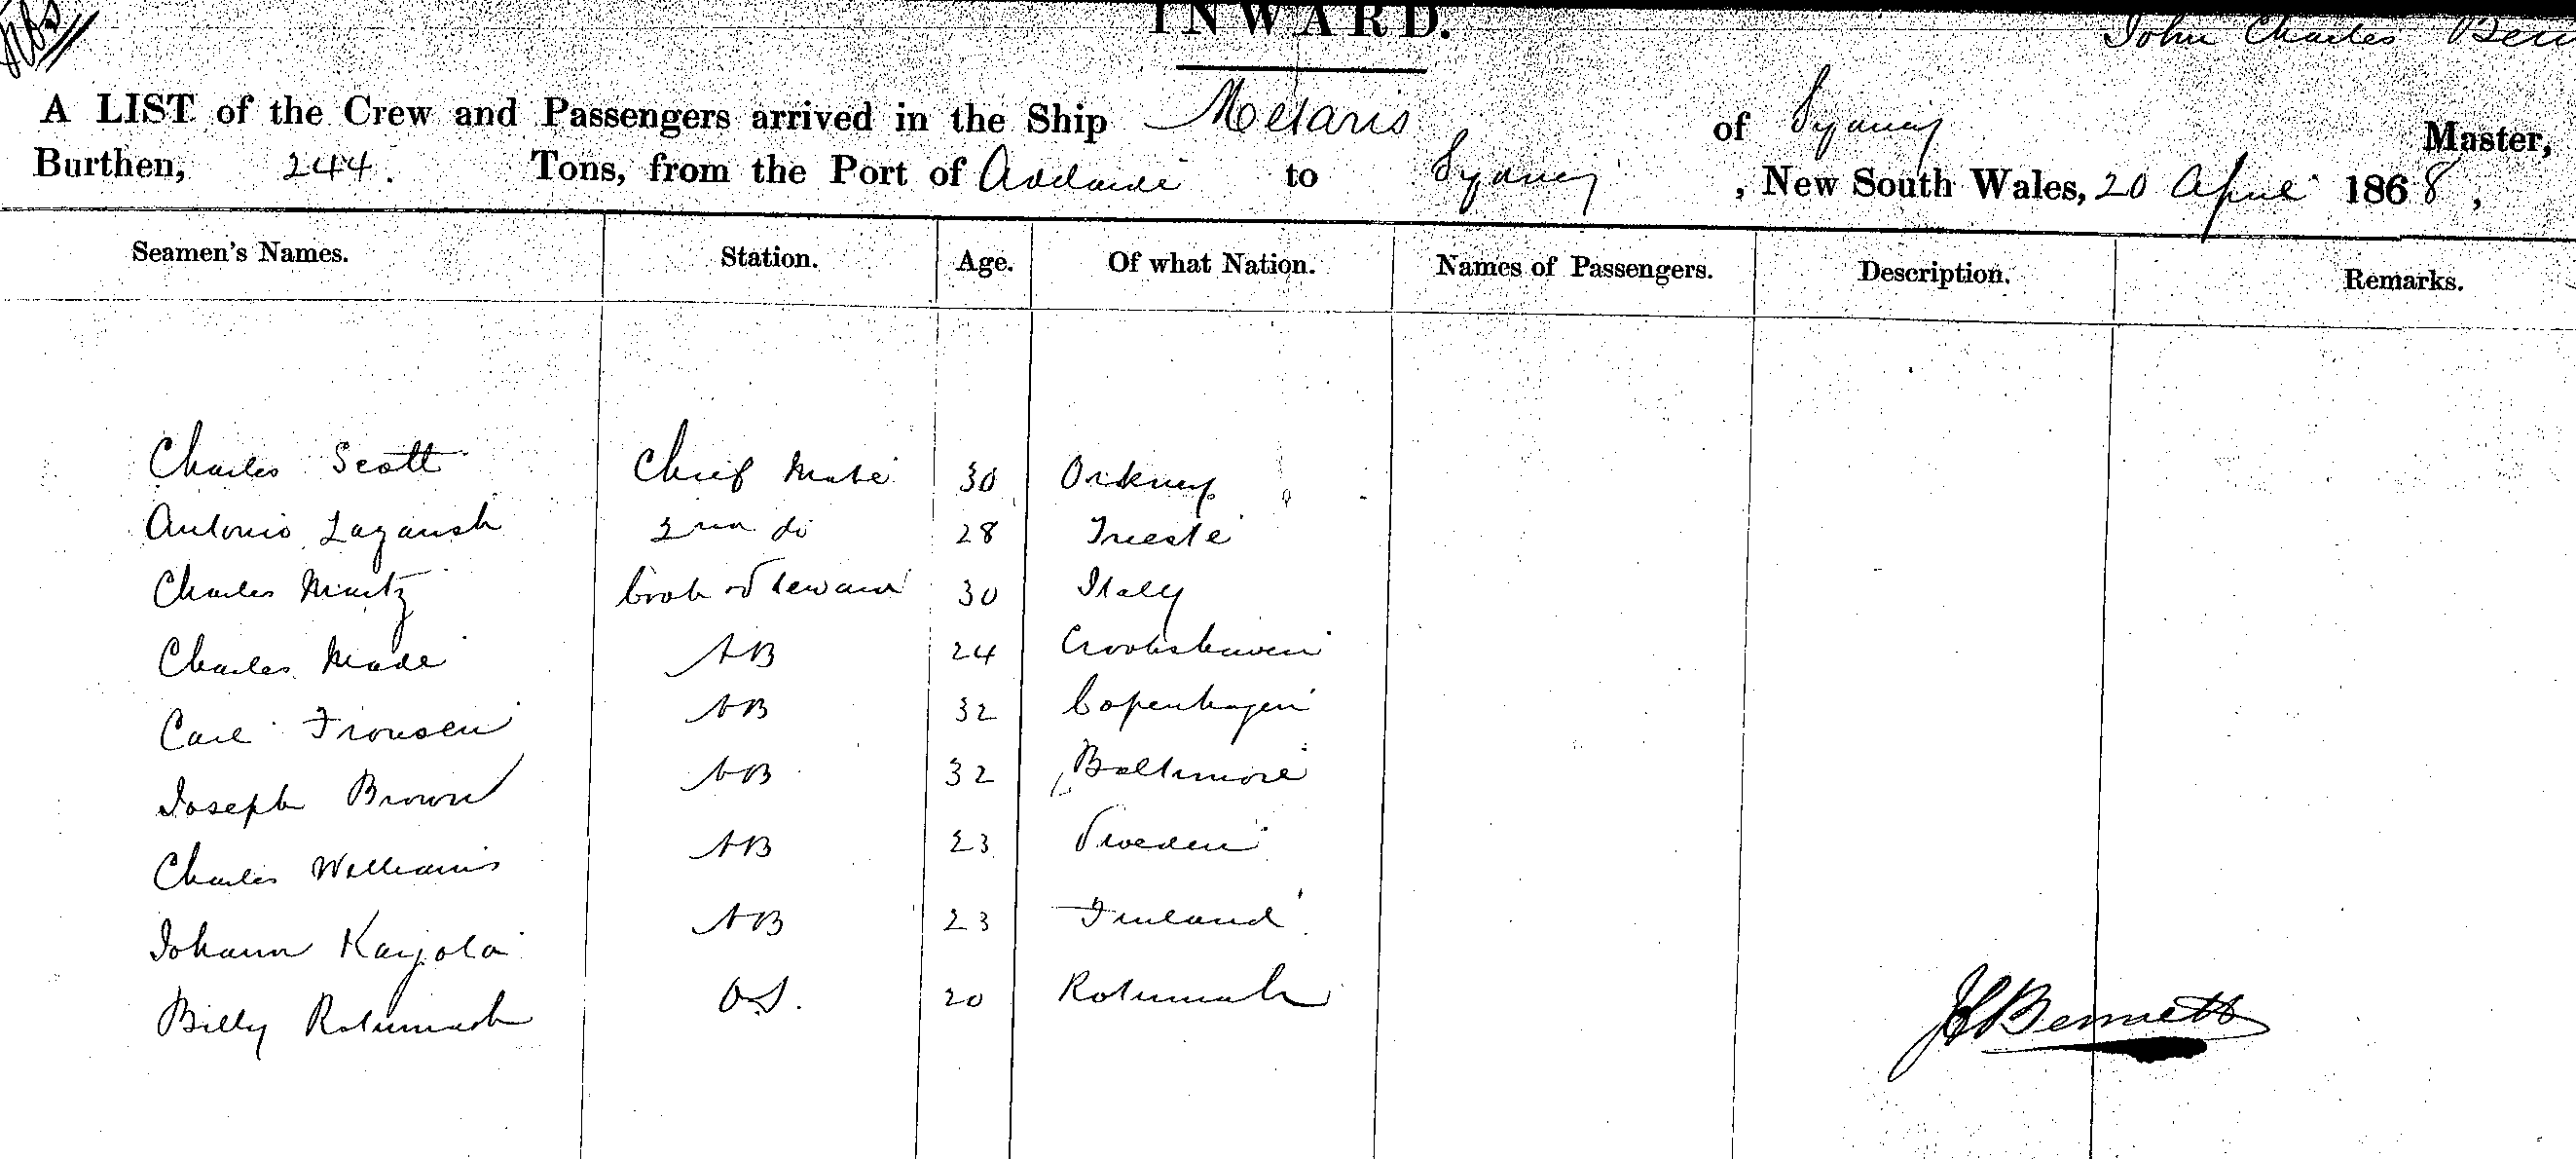 INWARD.
John Charles
A LIST of the Crew and Passengers arrived in the Ship Metaris of Sydney Master,
Burthen, 244. Tons, from the Port of Adelaide to Sydney, New South Wales, 20 April 1868,
Seamen's Names. Station. Age. Of what Nation. Names of Passengers. Description. Remarks.
Charles Scott Chief Mate 30 Orkney
Antonio 2nd do 28 Trieste
Charles Cook & Steward 30 Italy
Charles AB 24 Crookshaven
Carl AB 32 Copenhagen
Joseph Brown AB 32 Baltimore
Charles Williams AB 23 Sweden
Johann AB 23 Finland
Billy Rotumah OS. 20 Rotumah
JCBennett